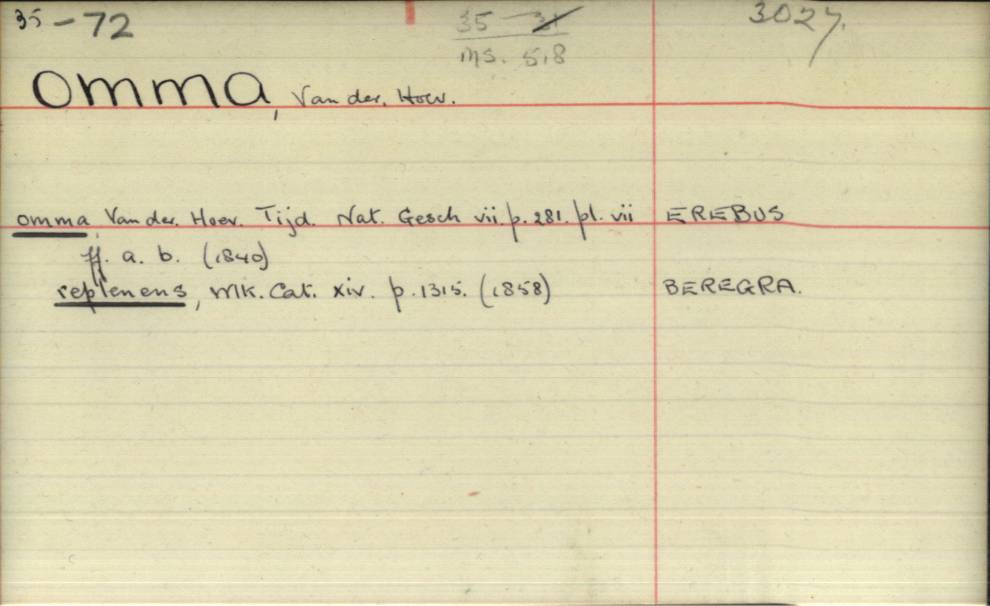 35-72
35 31 3027.
ms. 518
Omma, Van der. Hoev.
omma, Van der. Hoev. Tijd. Nat. Gesch vii. p. 281. pl. vii EREBUS
ff. a. b. (1840)
replenens, Wlk. Cat. xiv. p. 1315. (1858) BEREGRA.